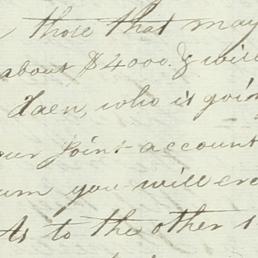 those that may
about $4000. & will
Haen, who is goin
our joint account
um you will cre
As to the other s